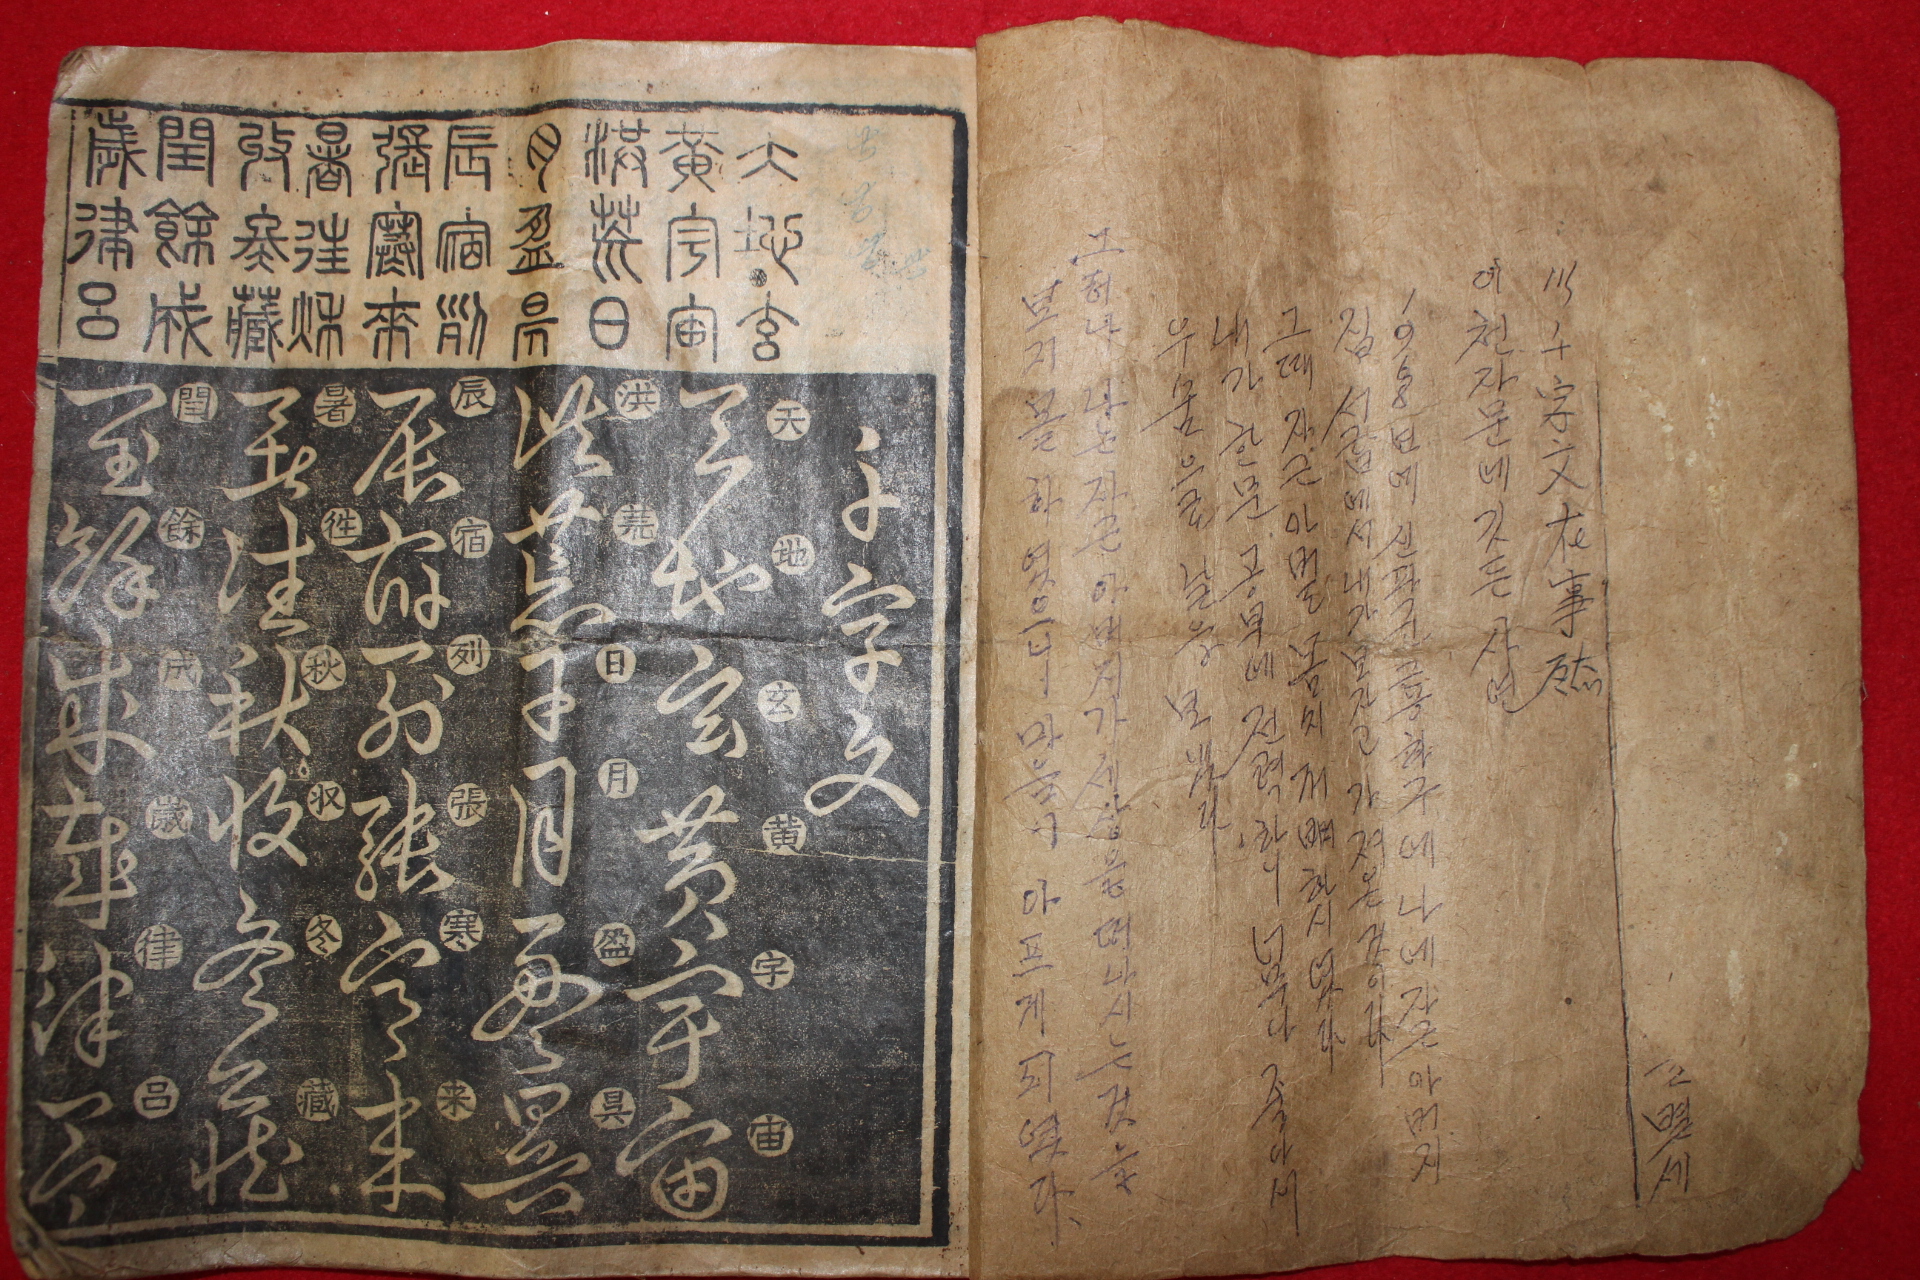 별세
千字文在事
이 천자문네 깃든 사연
1968년에 학구에 나네 작은아버지
집 서랍에서 내가 보자고 가져온 것이다
그때 작은아버님 몹시 하시였다
내가 한문 공부에 전력하니 너무나 좋아서
보냈다
그러나 나는 작은아버지가 세상을 떠나시는 것을
보지 못하였으니 마음이 아프게 되였다.
天地玄
黃宇宙
洪荒日
月盈昃
辰宿列
張寒來
暑往秋
收冬藏
閏餘成
歲律呂
千字文
天地玄黄宇宙
天地玄黃宇宙
洪荒日月盈昃
洪荒日月盈昃
辰宿列張寒来
辰宿列張寒來
暑徃秋収冬藏
暑往秋收冬藏
閏餘成歳律呂
閏餘成歲律呂